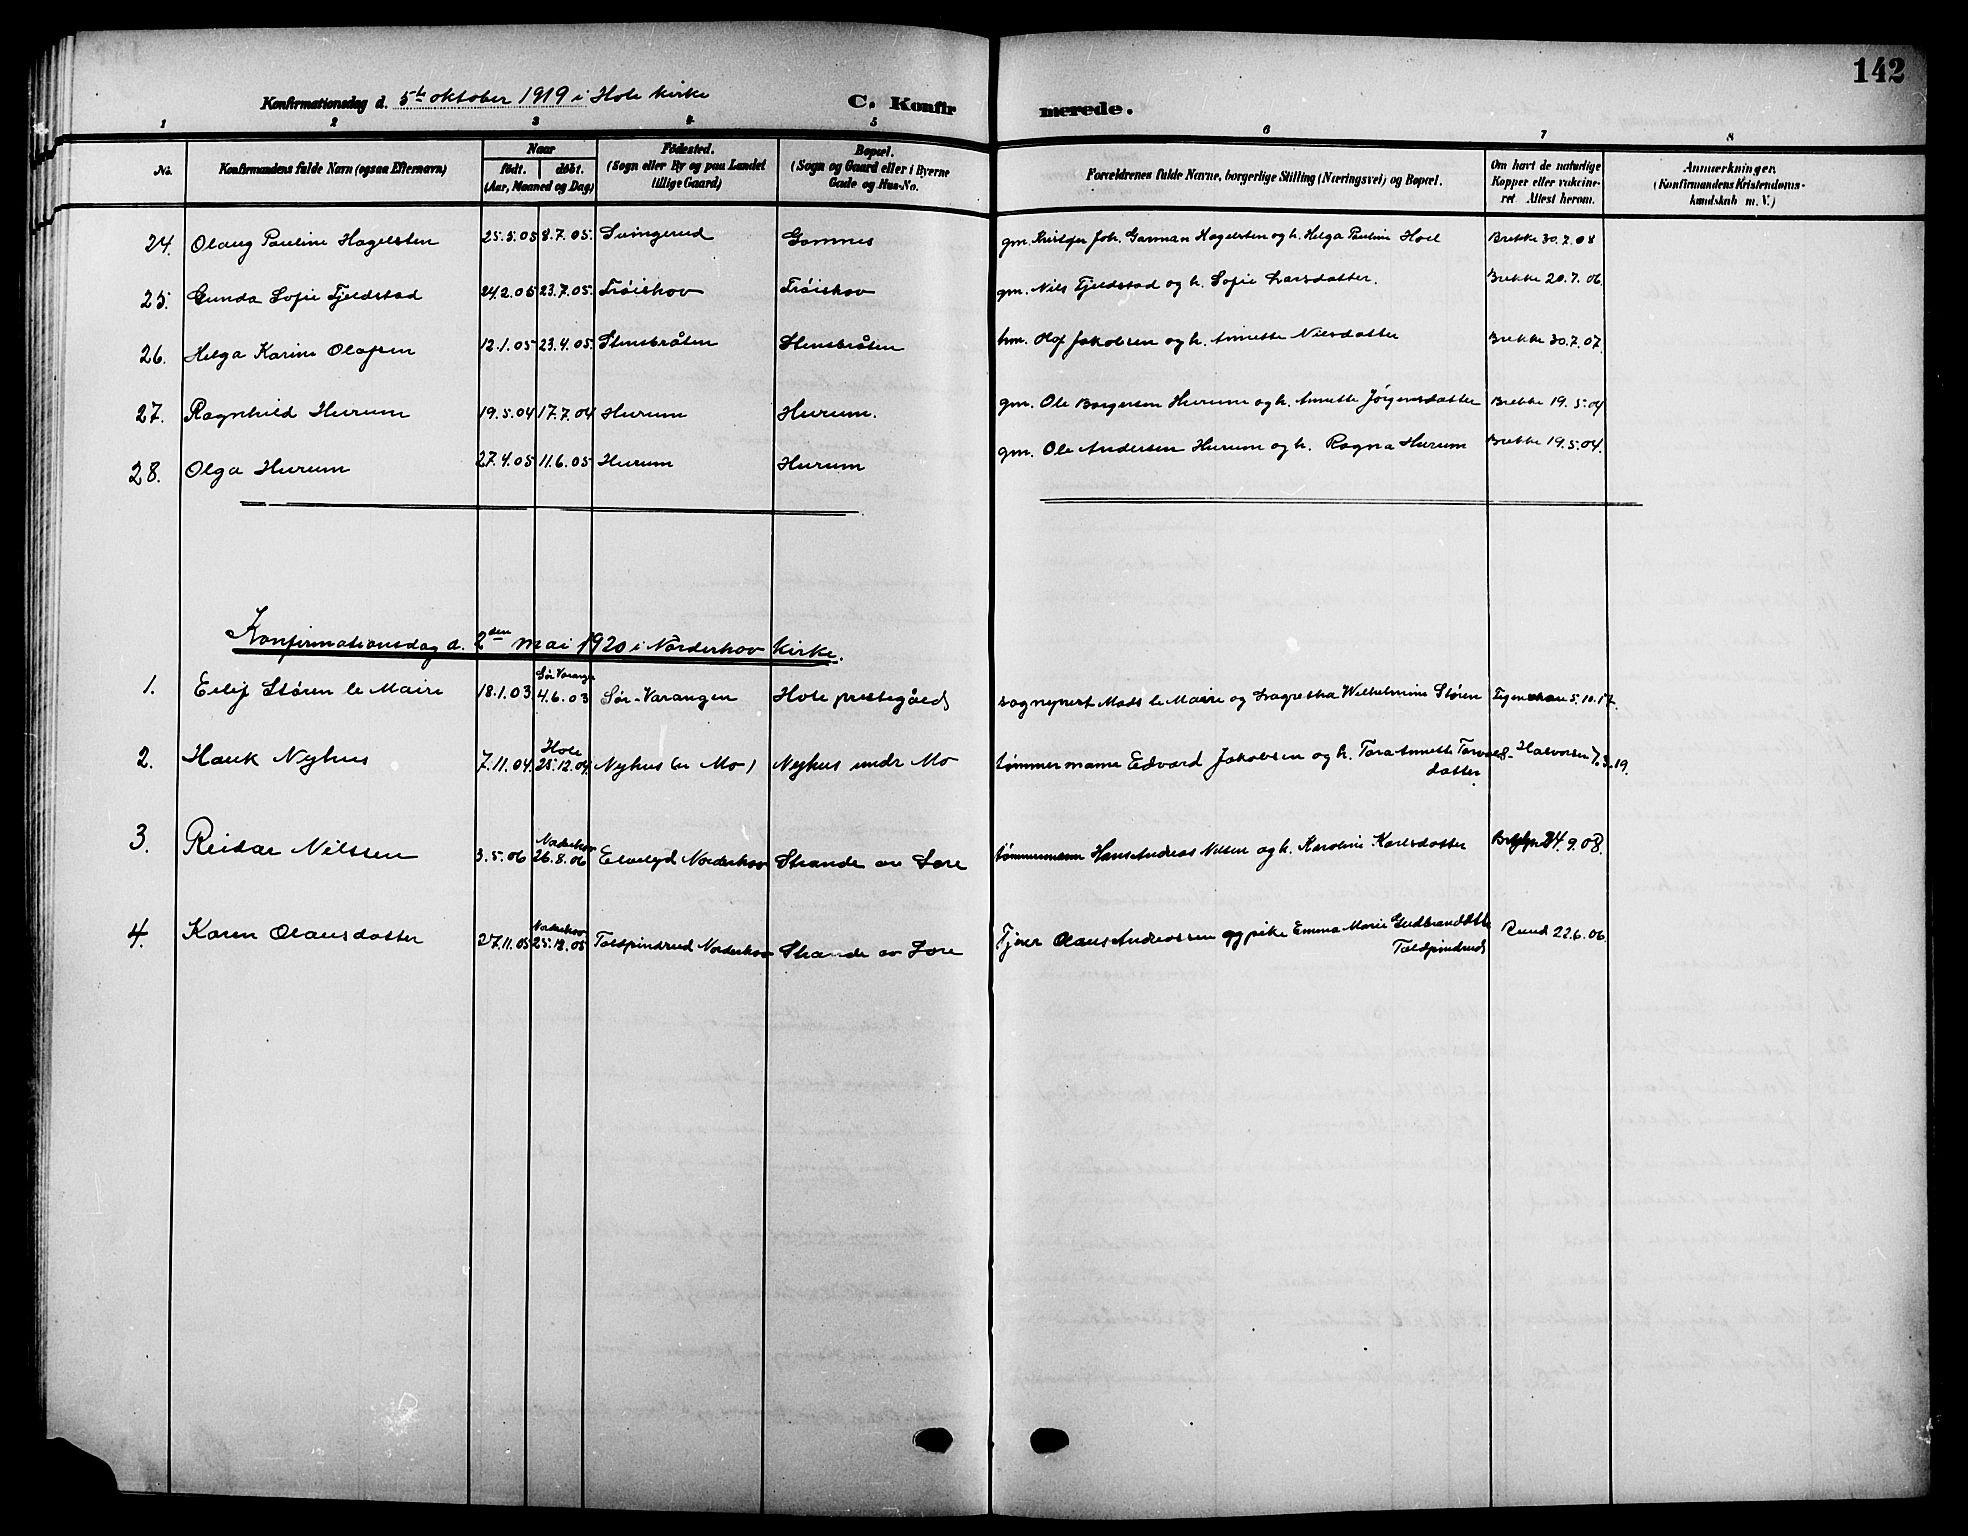 142
Konfirmationsdag d. 5te oktober 1919 i Hole kirke C. Konfirmerede.
1 2 3 4 5 6 7 8
No. Konfirmandens fulde Navn (ogsaa Efternavn) Naar födt. döbt. (Aar, Maaned og Dag) Födested. (Sogn eller By og paa Landet tillige Gaard) Bopæl. (Sogn og Gaard eller i Byerne Gade og Hus-No. Forældrenes fulde Navne, borgerlige Stilling (Næringsvei) og Bopæl. Om havt de naturlige Kopper eller vakcineret Attest herom. Anmærkninger. (Konfirmandens Kristendomskundskab m. V.)
24. Olaug Pauline Hagelsten 25.5.05 8.7.05. Svingerud Gomnes gm. Kristofer Joh. Garman Hagelsten og h. Helga Pauline Hoel Brekke 30.7.08
25. Gunda Sofie Fjeldstad 24.2.05 23.7.05. Frøishov Frøishov gm. Nils Fjeldstad og h. Sofie Larsdatter. Brekke 20.7.06
26. Helga Karine Olafsen 12.1.05 23.4.05. Stensbråten Stensbråten hm. Olaf Jakobsen og h. Annette Nilsdatter Brekke 30.7.07.
27. Ragnhild Hurum 19.5.04 17.7.04 Hurum Hurum. gm. Ole Borgersen Hurum og h. Annette Jørgensdatter Brekke 19.5.04
28. Olga Hurum 27.4.05 11.6.05 Hurum Hurum gm. Ole Andersen Hurum og h. Ragna Hurum Brekke 19.5.04.
Konfirmationsdag d. 2den mai 1920 i Norderhov kirke.
1. Eilif Støren le Maire 18.1.03 Sør-Varange 4.6.03 Sør-Varangen Hole prestegård sogneprest Mads le Maire og Wilhelmine Støren 5.10.17.
2. Hauk Nyhus 7.11.04. Hole 25.12.04. Nyhus (u Mo) Nyhus undr Mo tømmermann Edvard Jakobsen og h. Tora Annette Torvalds- Halvorsen 7.3.19.
datter
3. Reidar Nilssen 3.5.06 Norderhov 26.8.06 Elvelyd Norderhov Strande av Lore tømmermann Hans Andreas Nilsen og h. Karoline Karlsdatter 24.9.08.
4. Karen Olausdatter 27.11.05 Norderhov 25.12.05 Toldpindrud Norderhov Strande av Lore Fjører Olaus Andreassen og pike Emma Marie Gudbrandsdtte Ruud 22.6.06
Toldpindrud